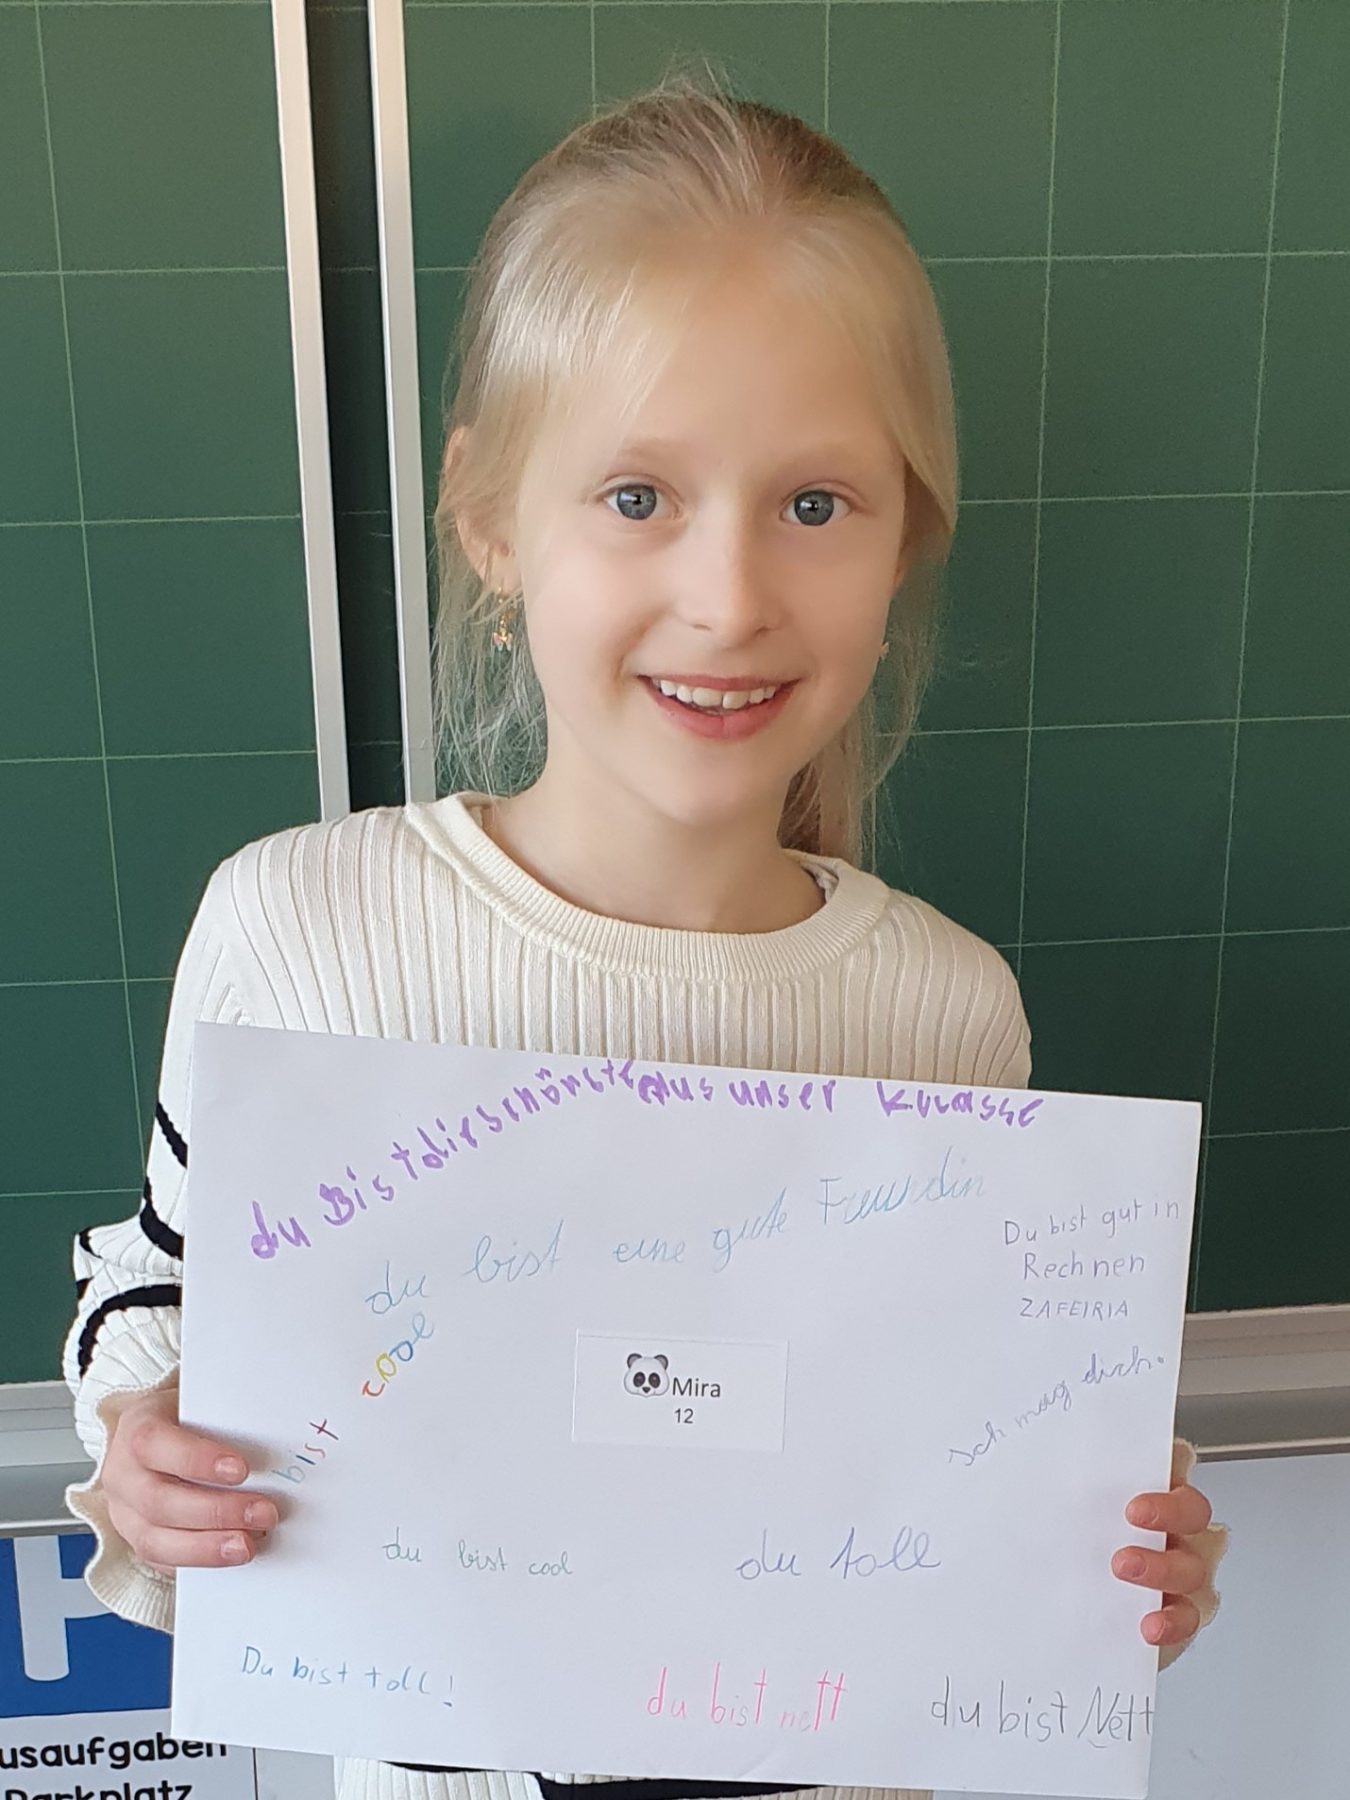 du Bist die schönste aus unser Klasse
du bist eine gute Freundin
Du bist gut in
Rechnen
ZAFEIRIA
bist cool
Mira
12
ich mag dich.
du bist cool
du toll
Du bist toll!
du bist nett
du bist Nett
usaufgaben
Parkplatz